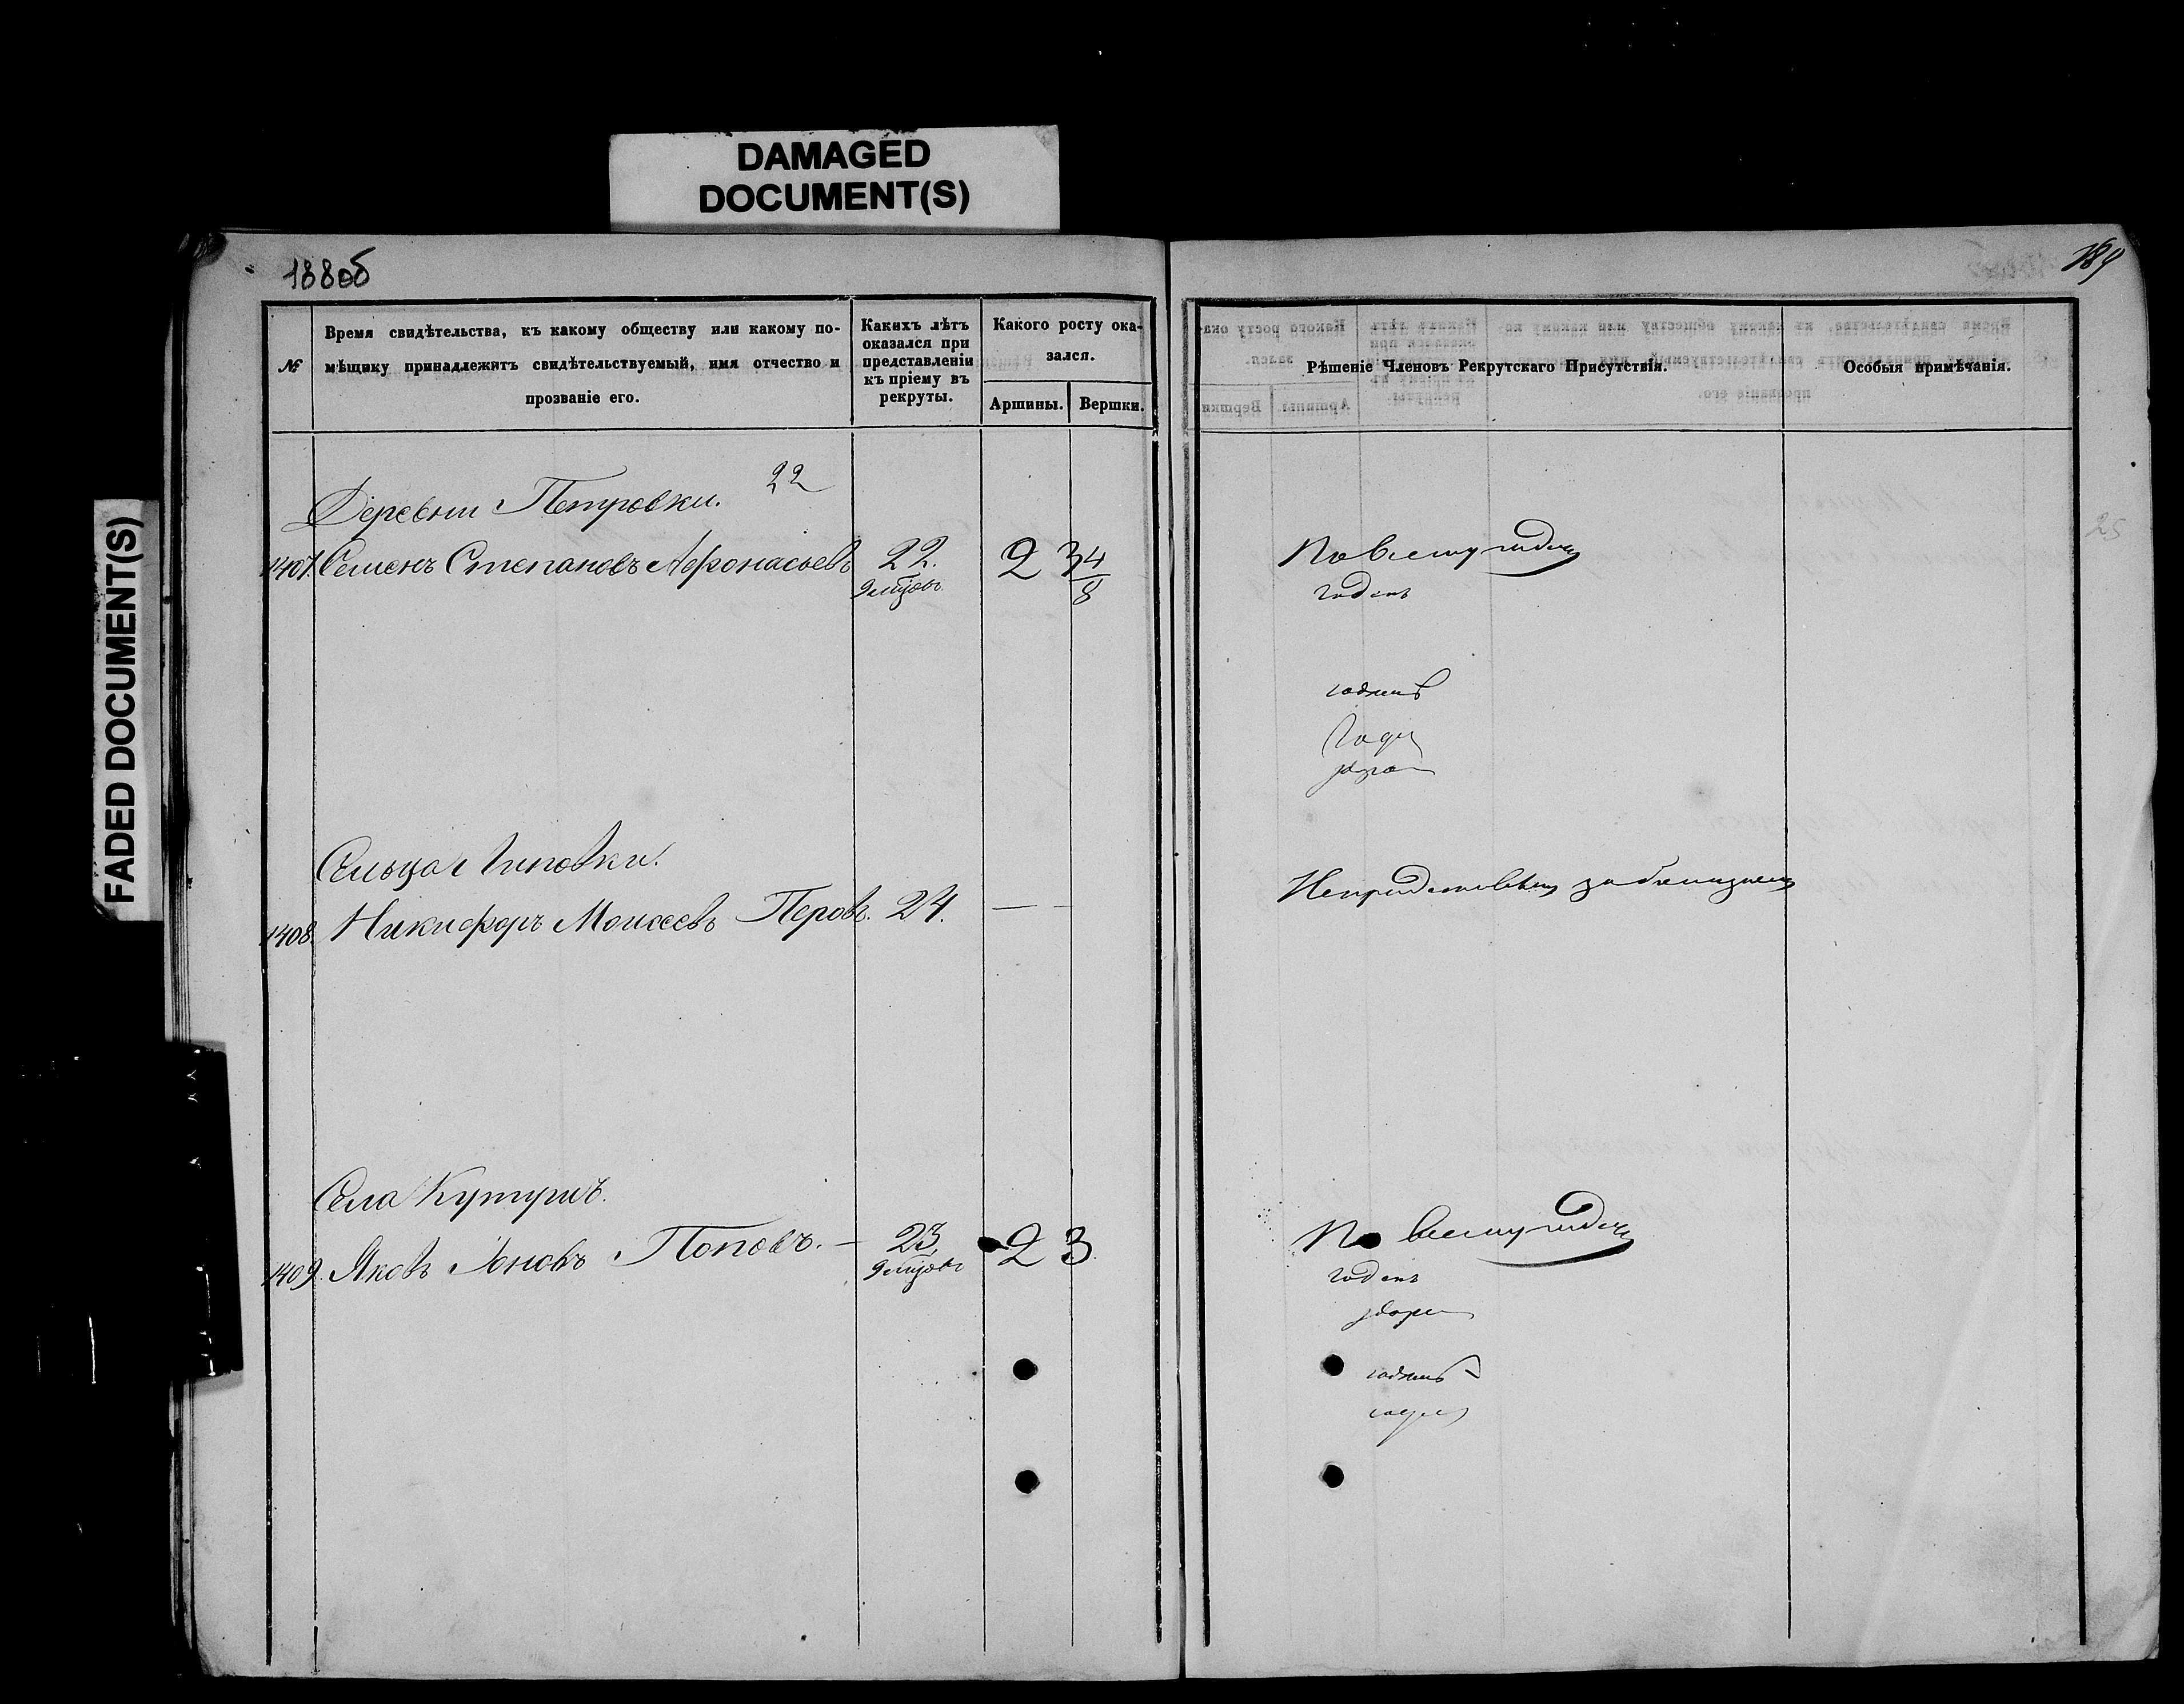 DAMAGED
DOCUMENT(S)
FADED DOCUMENT(S)
188об
№
Время свидѣтельства, къ какому обществу или какому по-
мѣщику принадлежитъ свидѣтельствуемый, имя отчество и
прозваніе его.
Какихъ лѣтъ
оказался при
представленіи
къ пріему въ
рекруты.
Какого росту ока-
зался.
Аршины.
Вершки.
22
Деревни Петровки.
1407. Семенъ Степановъ Афонасьевъ 22. 2 3 4/8
9 мцовъ
Сельца Липовки.
1408. Никифоръ Моисеевъ Перовъ. 24. — —
Села Кутуришъ.
1409. Яковъ Іоновъ Поповъ. — 23. 2 3.
9 мцовъ
189
Рѣшеніе Членовъ Рекрутскаго Присутствія.
Особыя примѣчанія.
25
По всему годенъ
годенъ
годенъ
По всему годенъ
годенъ
годенъ